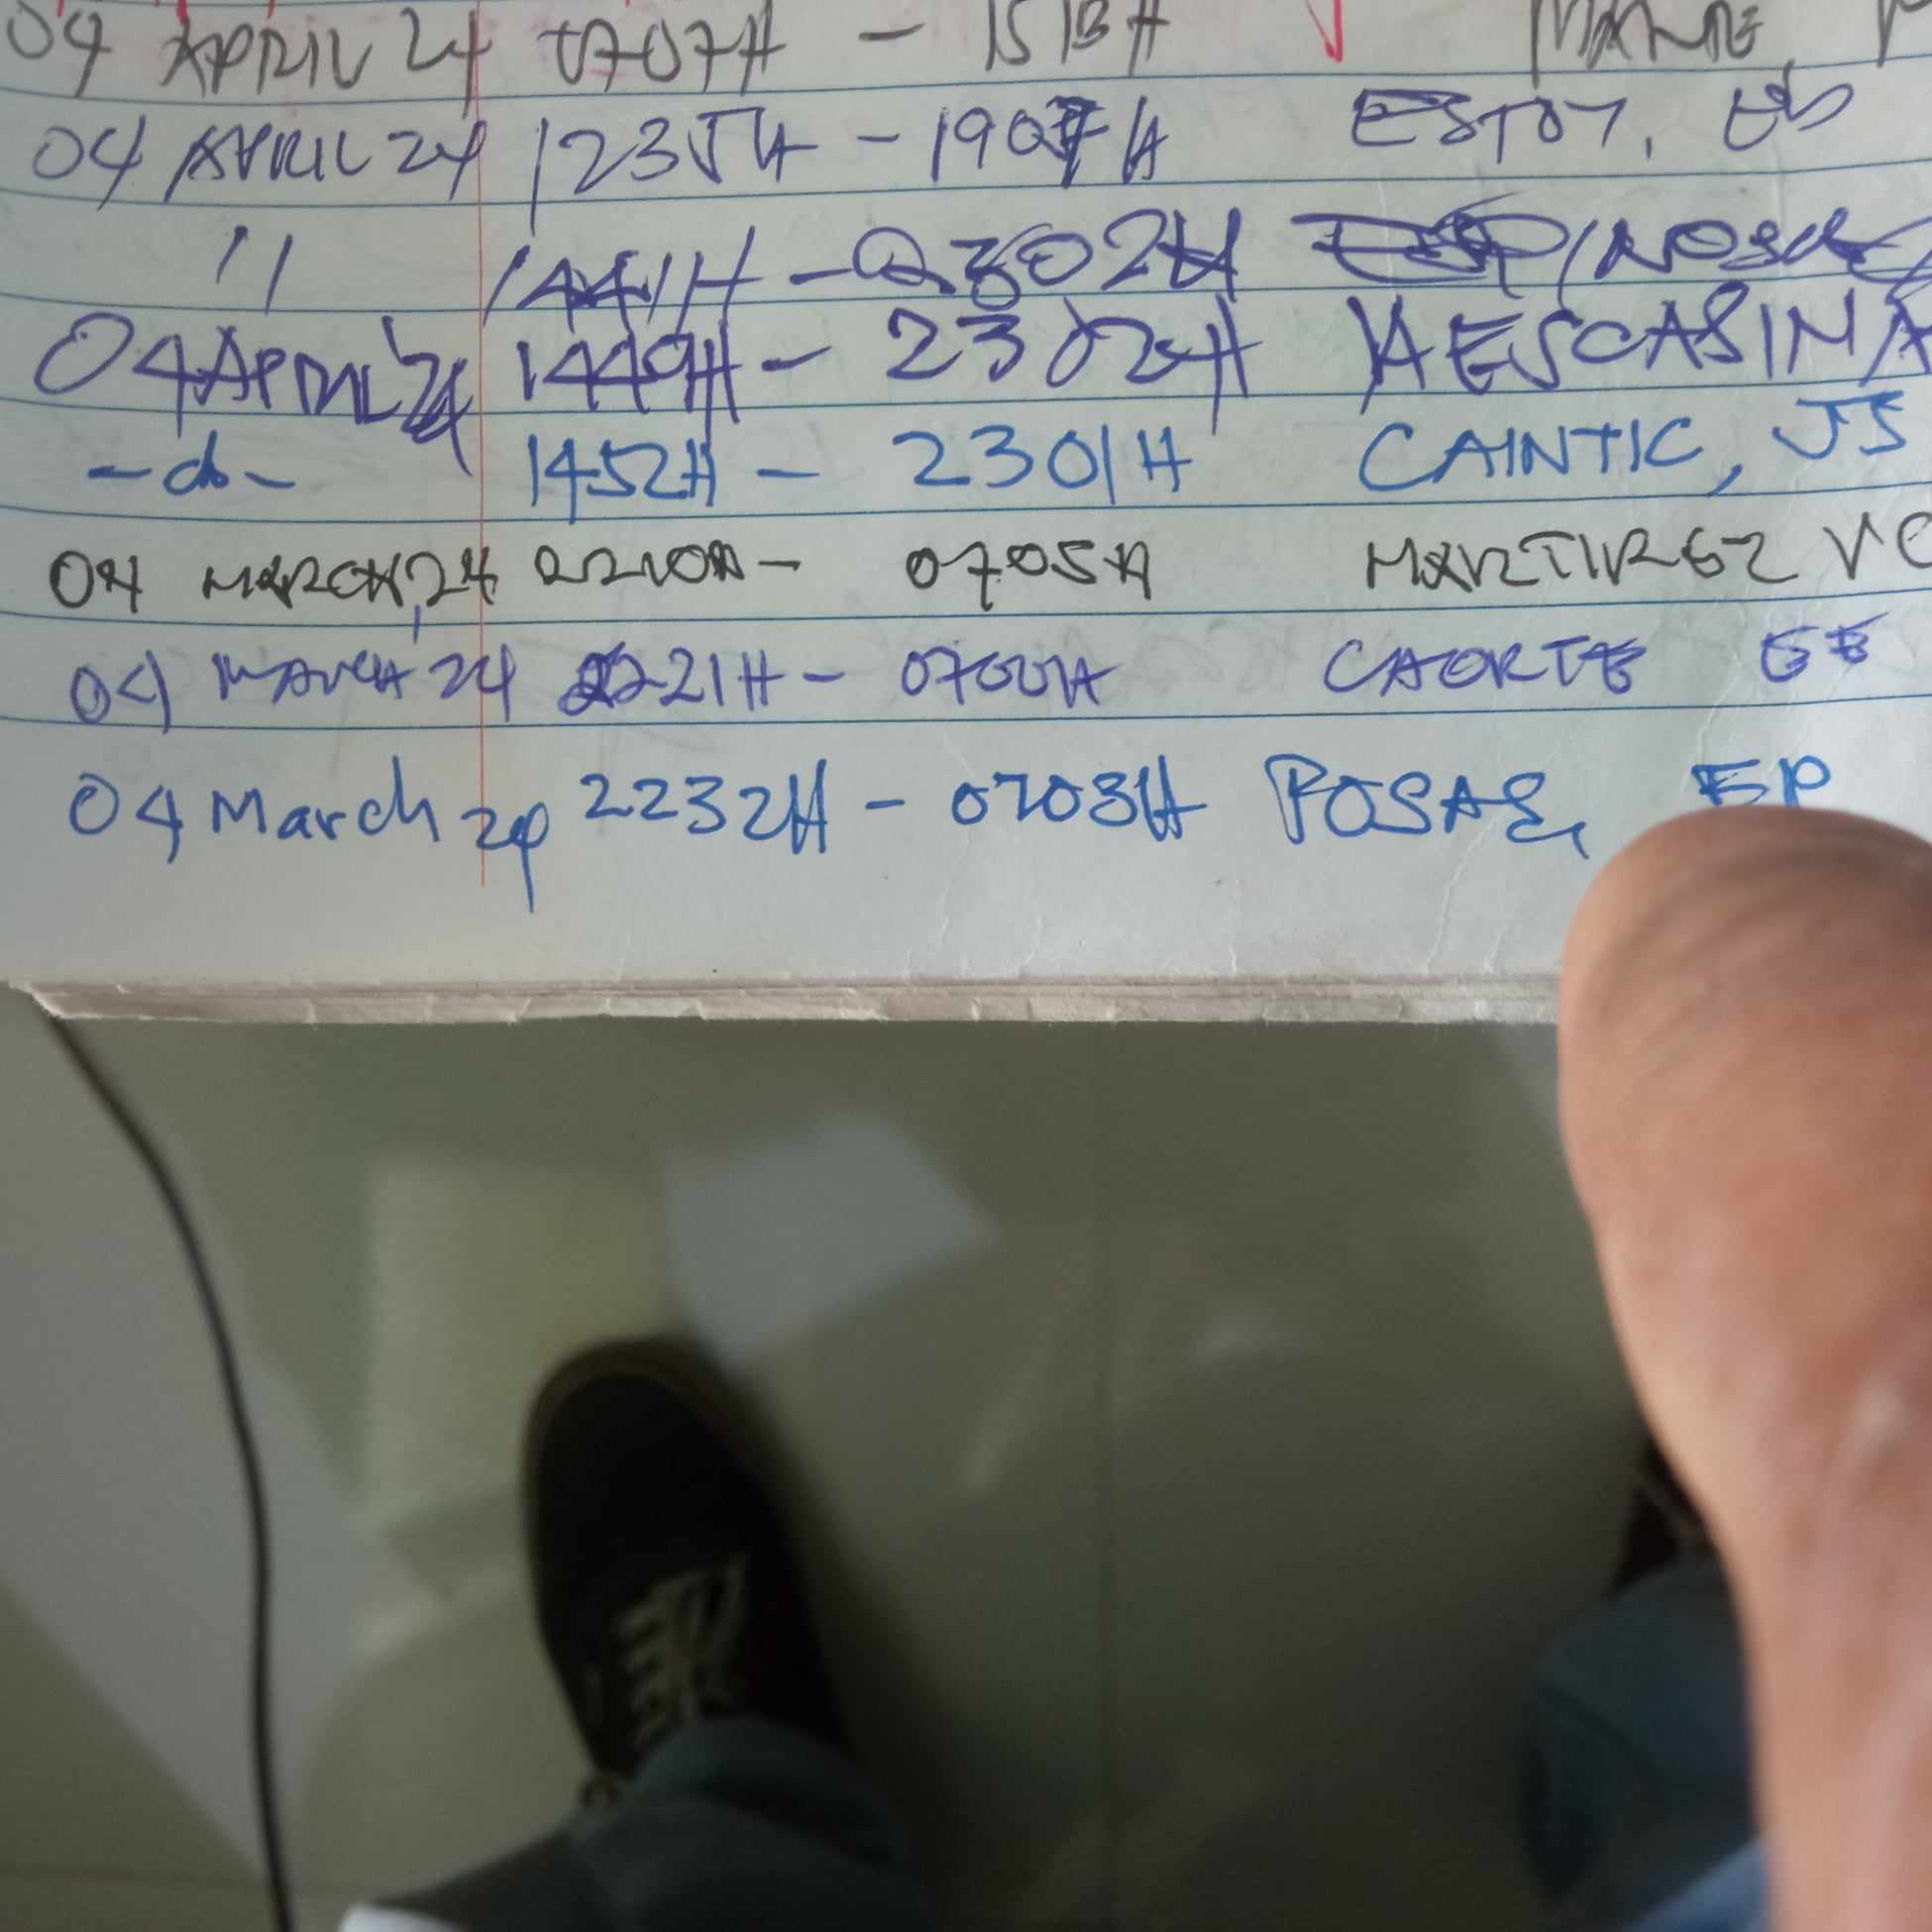 04 APRIL 24 0707H - 1513H
04 APRIL 24 1235H - 1907H ESTOY, EB
" 1441H - 2302H ESPINOSA
04 APRIL '24 1449H - 2302H AESCASINA
-do- 1452H - 2301H CAINTIC, JS
04 MARCH, 24 2210H - 0705H MARTIREZ VC
04 MARCH '24 2221H - 0700H CAORTE GE
04 March 24 2232H - 0703H POSAS, EP